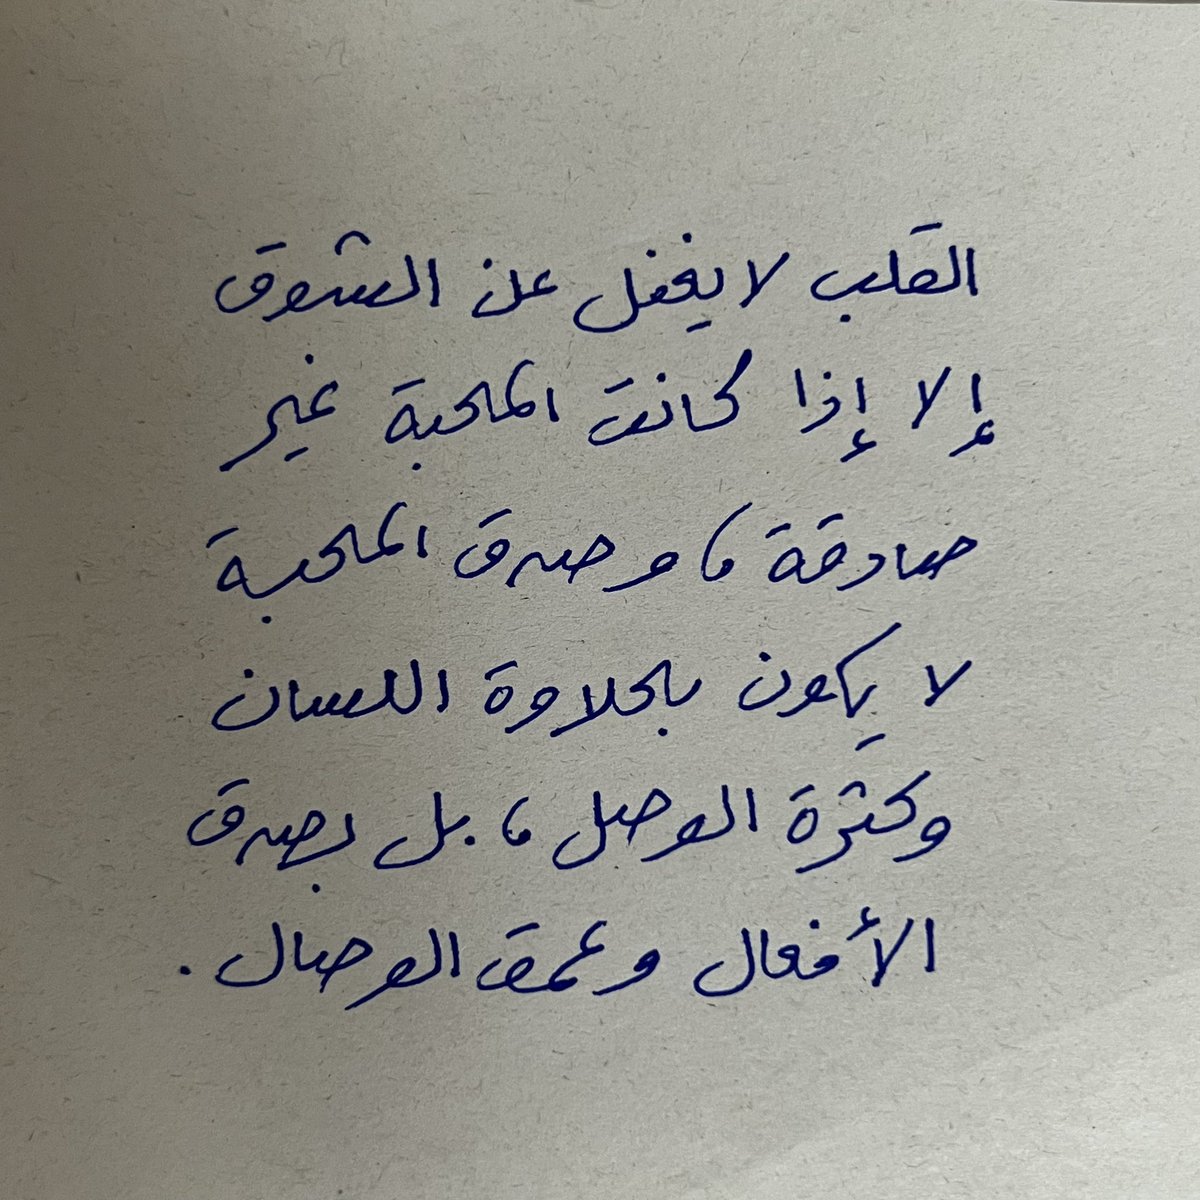 القلب لا يغفل عن الشوق
إلا إذا كانت المحبة غير
صادقة، وصدق المحبة
لا يكون بحلاوة اللسان
وكثرة الوصل، بل بصدق
الأفعال وعمق الوصال.